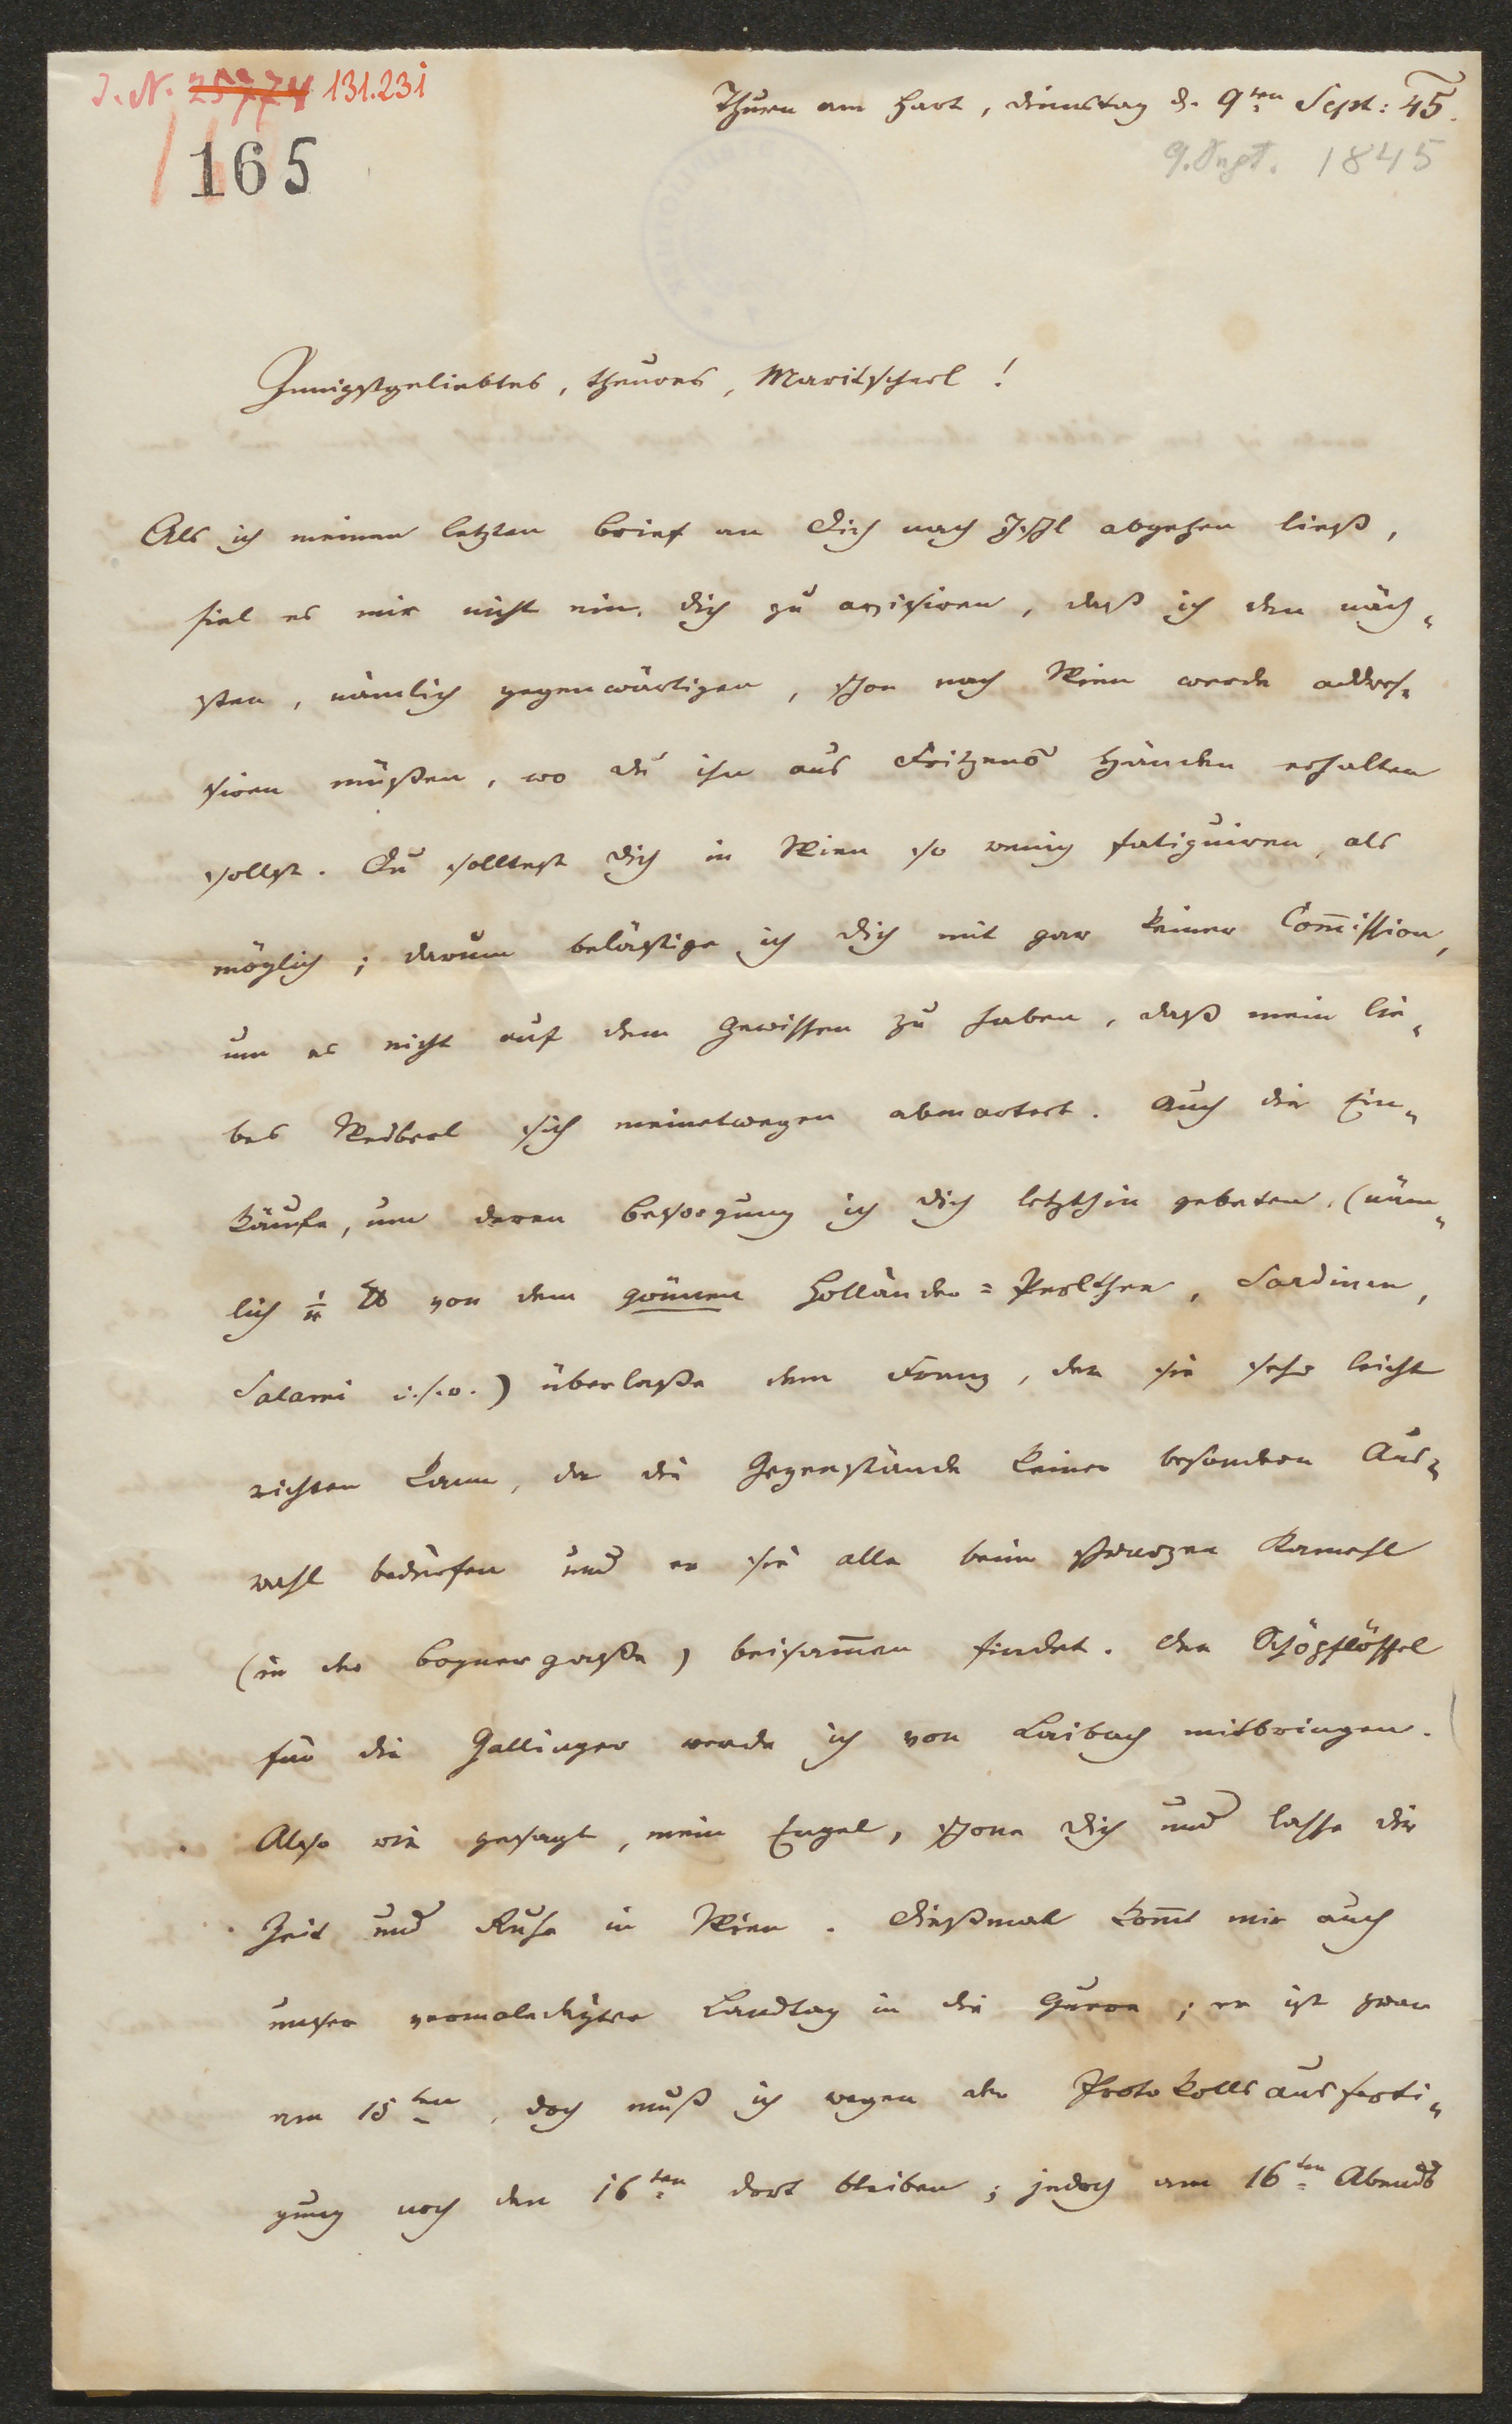 J. N. 25774 131.231
165
Thurn am Hart, Dienstag d. 9ten Sept: 45.
9. Sept. 1845
Innigstgeliebtes, theures, Maritscherl!
Als ich meinen letzten Brief an Dich nach Ischl abgehen ließ,
fiel es mir nicht ein, dich zu avisiren, daß ich den näch-
sten, nämlich gegenwärtigen, schon nach Wien werde addres-
siren müßen, wo du ihn aus Fritzens Händen erhalten
sollst. Du solltest dich in Wien so wenig fatiguiren, als
möglich; darum belästige ich dich mit gar keiner Com̅ission,
um es nicht auf dem Gewissen zu haben, daß mein lie-
bes Weiberl sich meinetwegen abmartert. Auch die Ein-
käufe, um deren Besorgung ich dich letzthin gebeten, (näm-
lich ℔ von dem grünen Holländer=Perlthee, Sardinen,
Salami u.s.w.) überlaße dem Franz, der sie sehr leicht
richten kann, da die Gegenstände keiner besondren Aus-
wahl bedürfen und er sie alle beim schwarzen Kameehl
(in der Bognergaße) beisam̅en findet. Den Schöpflöffel
für die Gallinger werde ich von Laibach mitbringen.
Also wie gesagt, mein Engel, schone dich und lasse dir
Zeit und Ruhe in Wien. Dießmal kom̅t mir auch
unser vermaledeyter Landtag in die Quere; er ist zwar
am 15ten, doch muß ich wegen der Protokollsausferti-
gung noch den 16ten dort bleiben; jedoch am 16ten Abends